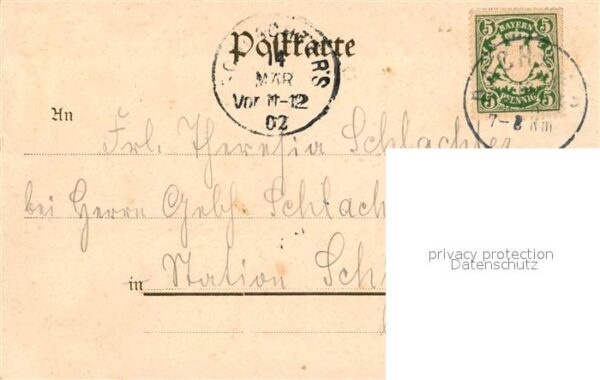 Postkarte
14
MÄR
Vor 11-12
02
5 BAYERN 5
5 PFENNIG 5
7-8 Nm
An
Frl. Theresia Schlachter
bei Herrn Gebh. Schlach
in Station Sch
privacy protection
Datenschutz